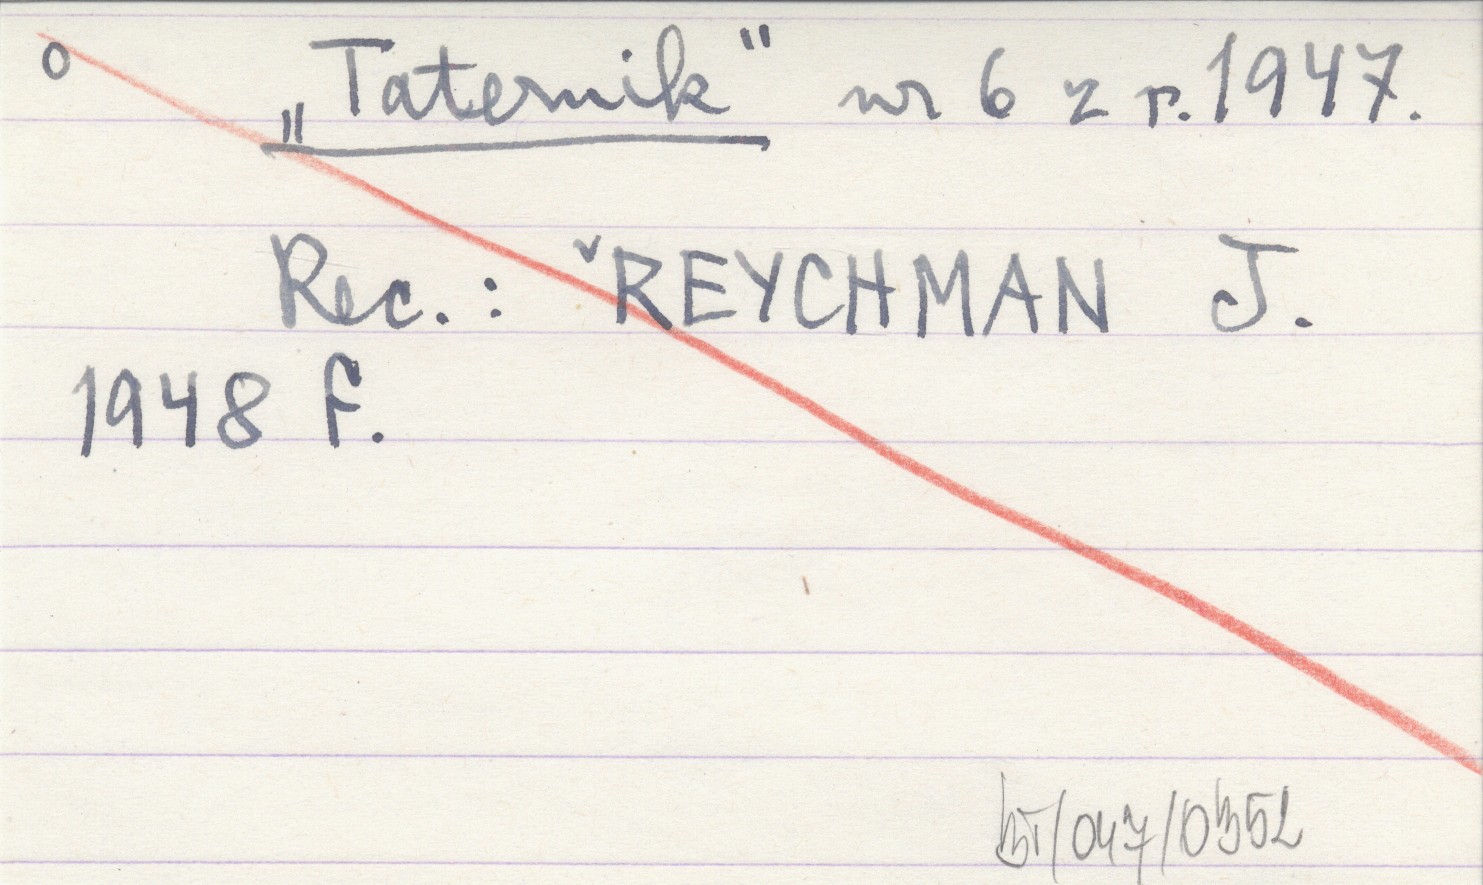 o „Taternik" nr 6 z r. 1947.
Rec.: ˇREYCHMAN J.
1948 f.
BT/047/0352